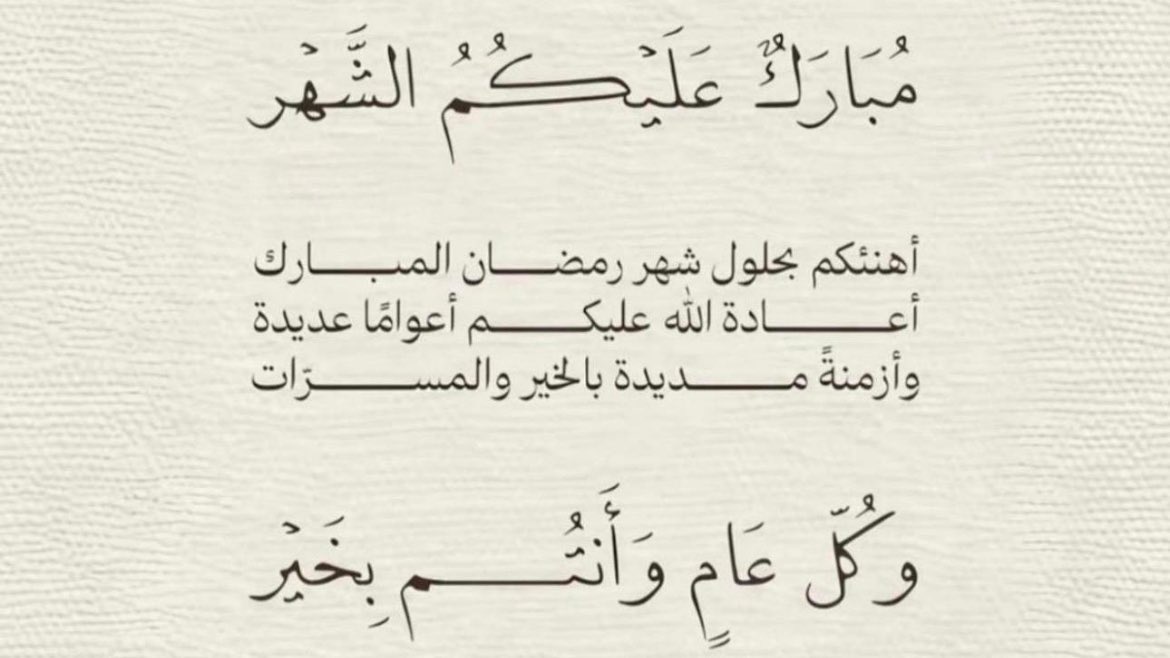 مُبَارَكٌ عَلَيْكُمُ الشَّهْر
أهنئكم بحلول شهر رمضـــان المبـــارك
أعـــــادة الله عليكـــــم أعوامًا عديدة
وأزمنةً مـــــديدة بالخير والمســـــرّات
وَكُلّ عَامٍ وَأَنتُـــــم بِخَيْر